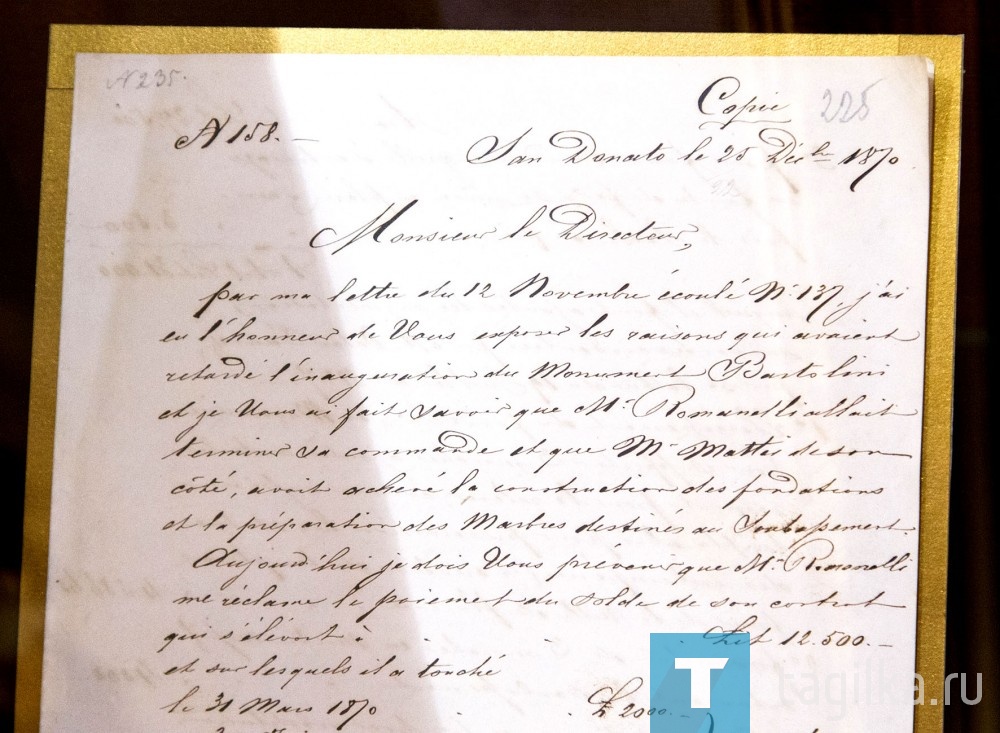 N 235.
Copie 225
N 158. —
San Donato le 25 Déc.bre 1870
Monsieur le Directeur,
par ma lettre du 12 Novembre écoulé N.° 137, j'ai
eu l'honneur de Vous exposer les raisons qui avaient
retardé l'inauguration du Monument Bartolini
et je Vous ai fait savoir que Mr. Romanelli allait
terminer sa commande et que Mr Mattei de son
côté, avait achevé la construction des fondations
et la préparation des Marbres destinés au Soubassement.
Aujourd'hui je dois Vous prevenir que Mr. Romanelli
me réclame le paiement du solde de son contrat
qui s'élevait à . . . £it 12.500.—
et sur lesquels il a touché
le 31 Mars 1870 . . £ 2000.—
T tagilka.ru